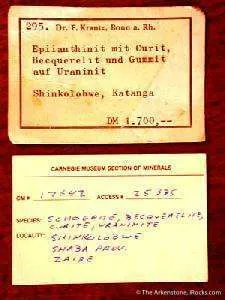 295. Dr. F. Krantz, Bonn a. Rh.
Epiianthinit mit Curit,
Becquerelit und Gummit
auf Uraninit
Shinkolobwe, Katanga
DM 1.700,--
CARNEGIE MUSEUM SECTION OF MINERALS
CM# 17642 ACCESS# 25335
SPECIES: SCHOEPITE, BECQUERELITE,
CURITE, URANINITE
LOCALITY: SHINKOLOBWE
SHABA PROV.
ZAIRE
© The Arkenstone, iRocks.com